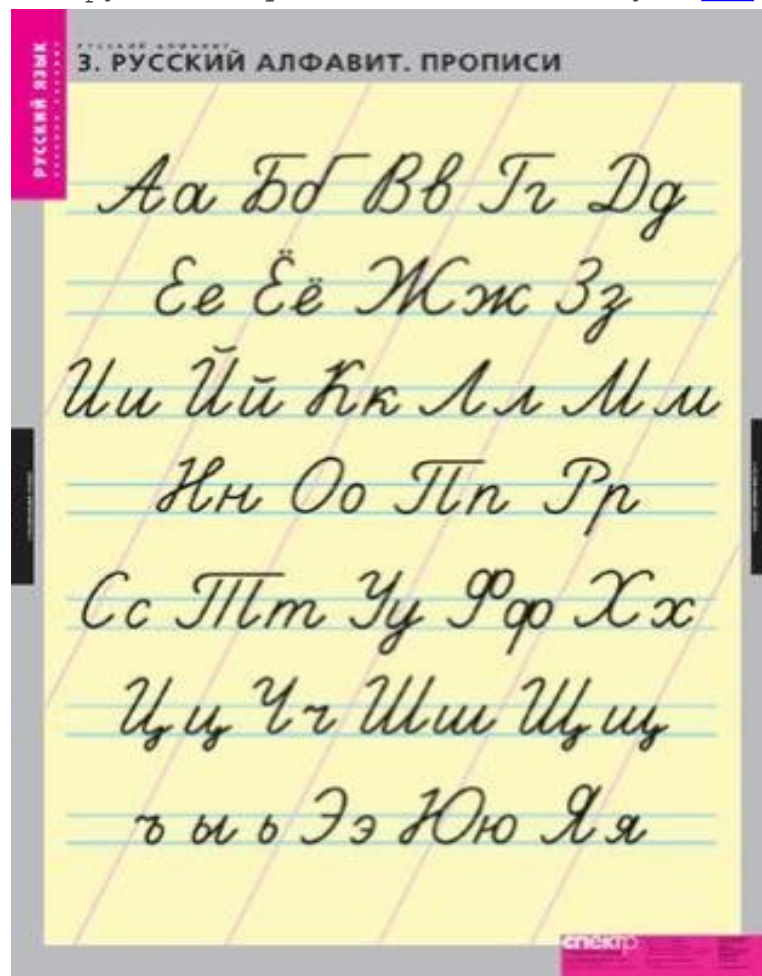 РУССКИЙ ЯЗЫК
РУССКИЙ АЛФАВИТ
3. РУССКИЙ АЛФАВИТ. ПРОПИСИ
Аа Бб Вв Гг Дд
Ее Ёё Жж Зз
Ии Йй Кк Лл Мм
Нн Оо Пп Рр
Сс Тт Уу Фф Хх
Цц Чч Шш Щщ
ъ ы ь Ээ Юю Яя
спектр